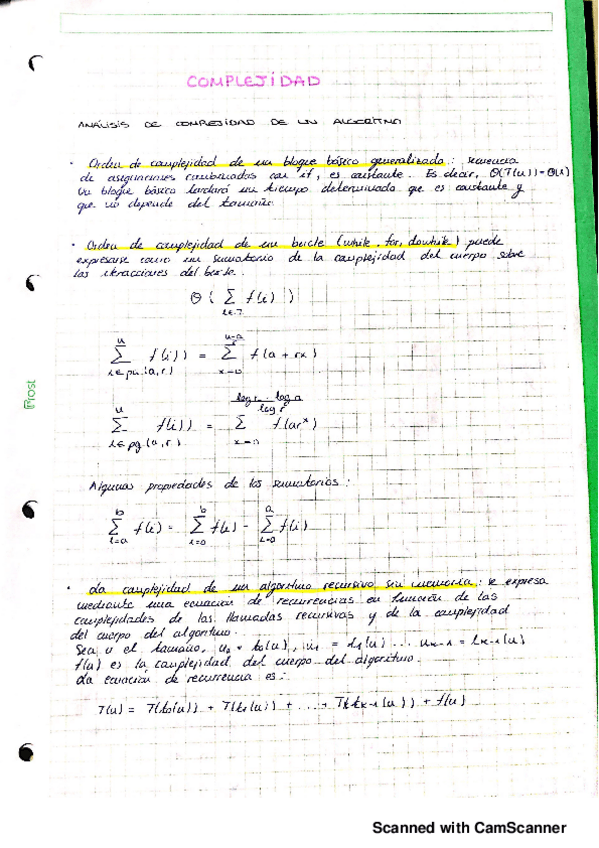 COMPLEJIDAD
ANÁLISIS DE COMPLEJIDAD DE UN ALGORITMO
· Orden de complejidad de un bloque básico generalizado : secuencia
de asignaciones combinadas con if, es constante. Es decir, Θ(T(n)) = Θ(1)
Un bloque básico tardará un tiempo determinado que es constante y
que no depende del tamaño.
· Orden de complejidad de un bucle (while, for, dowhile) puede
expresarse como un sumatorio de la complejidad del cuerpo sobre
las iteracciones del bucle.
Θ ( Σ f(i) )
i∈I
n
Σ f(i)) = Σ f(a + rx)
i∈pa(a,r) x=0
n
Σ f(i)) = Σ f(ar^x)
i∈pg(a,r) x=0
Algunas propiedades de los sumatorios :
b b a
Σ f(i) = Σ f(i) - Σ f(i)
i=a i=0 i=0
· La complejidad de un algoritmo recursivo sin memoria : se expresa
mediante una ecuación de recurrencias en función de las
complejidades de las llamadas recursivas y de la complejidad
del cuerpo del algoritmo.
Sea n el tamaño, n0 = t0(n), n1 = t1(n) ... nk-1 = tk-1(n)
f(n) es la complejidad del cuerpo del algoritmo.
La ecuación de recurrencia es :
T(n) = T(t0(n)) + T(t1(n)) + ... + T(tk-1(n)) + f(n)
Scanned with CamScanner